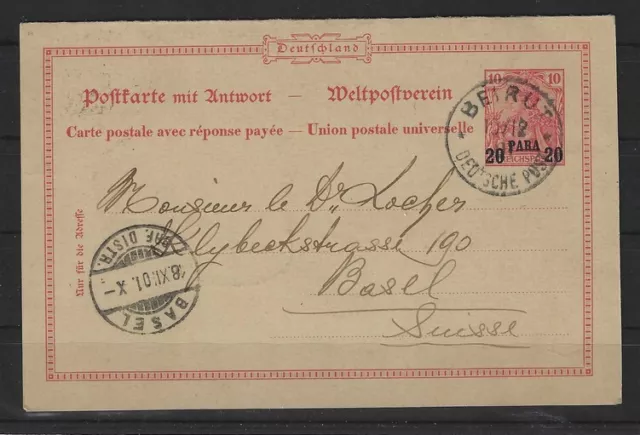 Deutschland
Postkarte mit Antwort — Weltpostverein
Carte postale avec réponse payée — Union postale universelle
10 10
PARA
20 20
BEIRUT
DEUTSCHE POST
Nur für die Adresse
Monsieur le Dr Locher
Klybeckstrasse 190
Basel
Suisse
BRF. DISTR.
8.XI.01.X-
BASEL